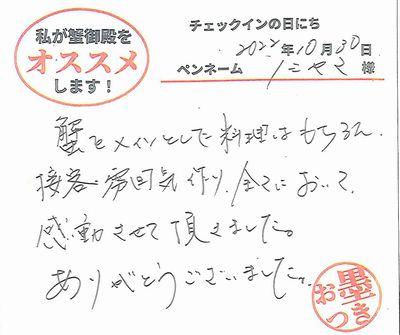 私が蟹御殿を
オススメ
します!
チェックインの日にち
2022年10月30日
ペンネーム ノミヤマ 様
蟹をメインとした料理はもちろん、
接客・雰囲気作り、全てにおいて、
感動させて頂きました。
ありがとうございました。
お墨つき